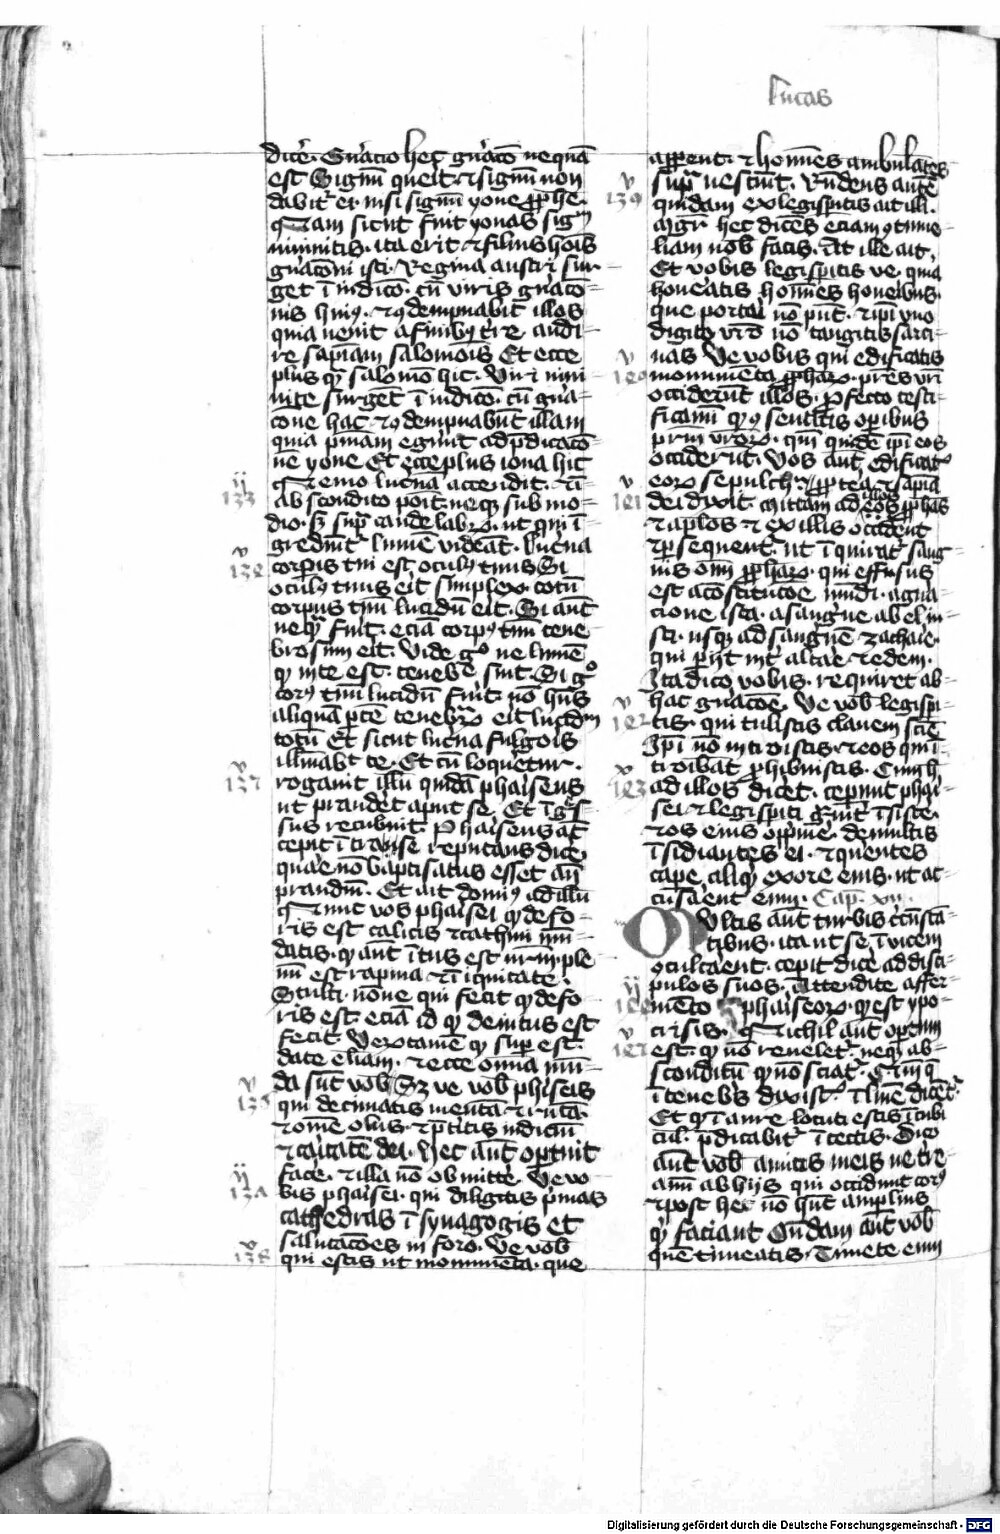 lucas
dicere. Gnacio hec gnaco nequa
est Signu querit. et signu non
dabitr ei. nisi signu yone pphe.
Nam sicut fuit yonas sign
niniuitis. ita erit et filius hois
gnaconi isti. Regina austri sur
get i iudico. cu viris gnaco
nis huius. et 9dempnabit illos
quia uenit a finibus tre audi
re sapiam salomois Et ecce
plus qm salomo hic. Viri nini
uite surget i iudico. cu gna
cone hac. et 9dempnabut illam
quia pniam egerut ad pdicaco
ne yone Et ecce plus iona hic
Nemo lucna accendit. et i
abscondito poit. neqz sub mo
dio. sz supr candelabrz. ut qui i
grediunt lume videat. lucna
corpis tui est oculus tuus Si
oculus tuus erit simplex. totu
corpus tuu lucidu erit. Si aut
neqm fuit. ecia corpus tuu tene
brosum erit. Vide go ne lume
qd in te est. tenebre sint. Si go
corpus tuu lucidu fuit. no hns
aliqua pte tenebrz erit lucidm
totu Et sicut lucna fulgoris
illuiabit te. Et cu loquetur.
rogauit illu quida phariseus
ut pranderet aput se. Et igrs
sus recubuit. Phariseus at
cepit i tra se reputans dice.
quare no baptisatus esset an
prandiu. Et ait domius ad illu
Nunc vos pharisei qd defo
ris est calicis et cathini mu
datis. qd aut itus est urm. ple
nu est rapina et iiquitate.
Stulti. none qui fecit qd defo
ris est. ecia id qd deintus est
fecit Verotame qd supest.
date eliam. et ecce omia mu
da sut vob Sz ve vob phiseis
qui decimatis menta. et ruta.
et ome olus. et ptitis iudiciu
et caritate dei. hec aut oportuit
face. et illa no obmitte. Ve vo
bis pharisei. qui diligitis pmas
cathedras i synagogis et
salutacoes in foro. Ve vob
qui estis ut monumeta. que
apparent. et homies ambulates
supr nesciut. Rndens aute
quidam ex legispitis ait illi.
Mgr hec dices eciam 9tume
liam nob facis. At ille ait.
Et vobis legispitis ve. quia
honeratis homies honeribus.
que portari no pnt. et ipi vno
digito vro no tangitis sarci
nas Ve vobis qui edificatis
monumeta ppharz. pres vri
occiderut illos. Pfecto testi
ficamini qd 9sentitis opibus
prm vrorz. qm quide ipi eos
occiderut. Vos aut edificatis
eorz sepulchra. Ppterea et sapia
dei dixit. Mittam ad illos pphas
et aplos et ex illis occident
et psequent. ut iquirat sang
nis oim ppharz. qui effusus
est a 9stitucoe mudi. a gna
cione ista. a sangne abel iu
sti. usqz ad sangne zacharie.
qui piit int altare et edem.
Ita dico vobis. requiret ab
hac gnacoe. Ve vob legispi
tis. qui tulistis clauem scie
Ipi no introistis. et eos qui i
troibat phibuistis. Cum h
ad illos diceret. ceperut phari
sei et legispiti grauit isiste.
et os eius opprime. de multis
isidiantes ei. et querentes
cape aliqd ex ore eius. ut ac
cusarent eum. Cap. xii.
Multis aut turbis circusta
tibus. ita ut se iuicem
9culcarent. cepit dice ad disci
pulos suos. Attendite a fer
mento phariseorz. qd est ypo
crisis. Nichil aut opertum
est. qd no reueletr. neqz ab
sconditu qd no sciatr. Qm q
i tenebris dixistis. i lumie dicentr
Et qd i aure locuti estis i cubi
cul. pdicabitr i tectis. Dico
aut vob amicis meis ne tre
amini ab hiis qui occidunt corpus
et post hec no hnt amplius
qd faciant Ondam aut vob
que timeatis. Timete eum
Digitalisierung gefördert durch die Deutsche Forschungsgemeinschaft - DFG